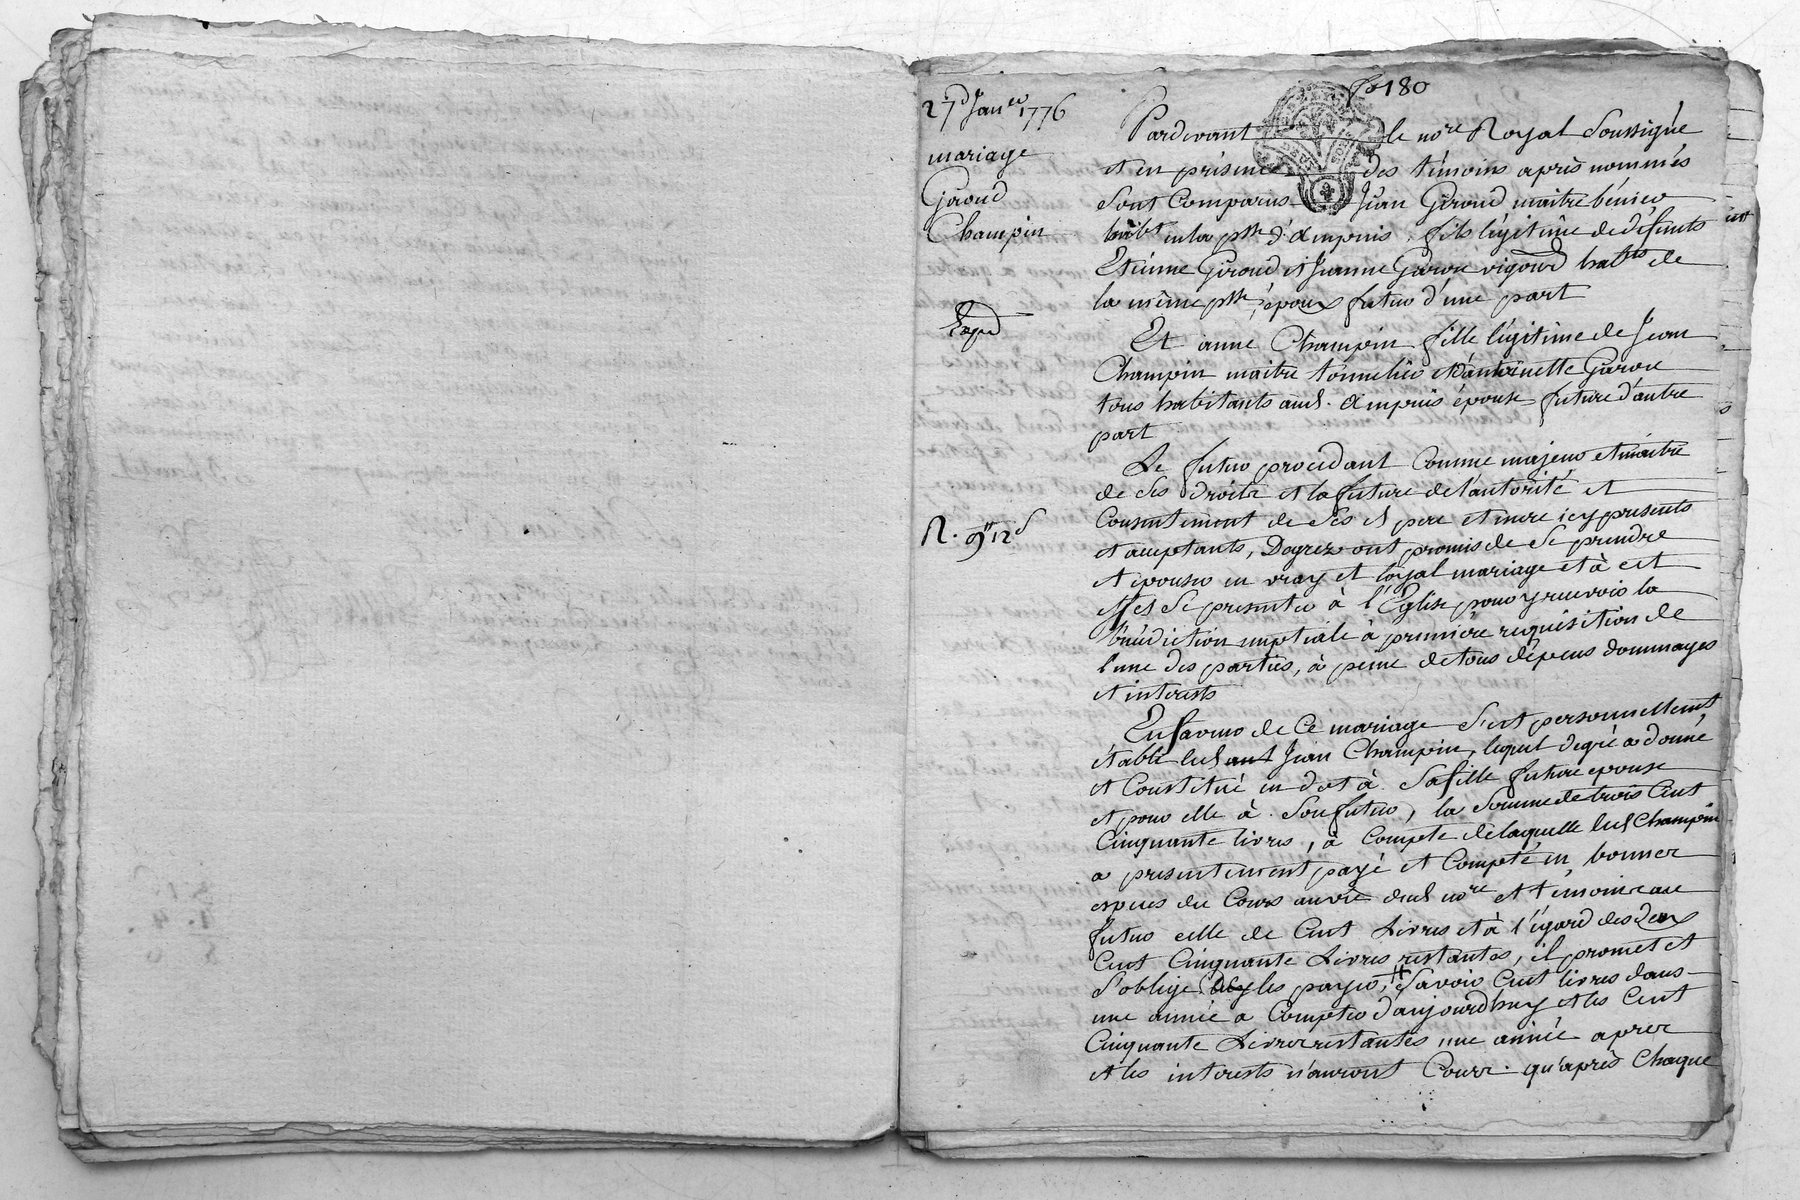 fo 180
27 Janer 1776
mariage
Giroud
Champin
Exped
R. 9ll 12s
Pardevant le nore Royal Soussigné
et en présence des témoins après nommés
sont comparus Jean Giroud maitre
habt en la psse d'ampuis, fils légitime de défunts
Etienne Giroud et Jeanne Garon vigourd habts de
la même psse, époux futur d'une part
Et anne Champin fille légitime de Jean
Champin maitre tonnelier et d'antoinette Garon
tous habitants aud. ampuis épouse future d'autre
part
Le futur procedant comme majeur et maitre
de ses droits et la future de l'autorité et
Consentement de ses d pere et mere icy presents
et acceptants, Degrez ont promis de se prendre
et epouser en vray et loyal mariage et à cet
effet se presenter à l'Eglise pour y recevoir la
bénédiction nuptiale à première requisition de
l'une des parties, à peine de tous dépens dommages
et interests
En faveur de Ce mariage s'est personnellement
établi led Jean Champin, lequel degré a donné
et Constitué en dot à sa fille future epouse
et pour elle à son futur, la somme de trois Cent
Cinquante livres, à Compte de laquelle led Champin
a presentement payé et Compté en bonnes
especes du Cours au vû dud nore et témoins au
futur celle de Cent Livres et à l'égard des deux
Cent Cinquante Livres restantes, il promet et
s'oblige les payer, # Savoir Cent livres dans
une année a Compter d'aujourdhuy et les Cent
Cinquante Livres restantes une année apres
et les interests n'auront Cours qu'après chaque